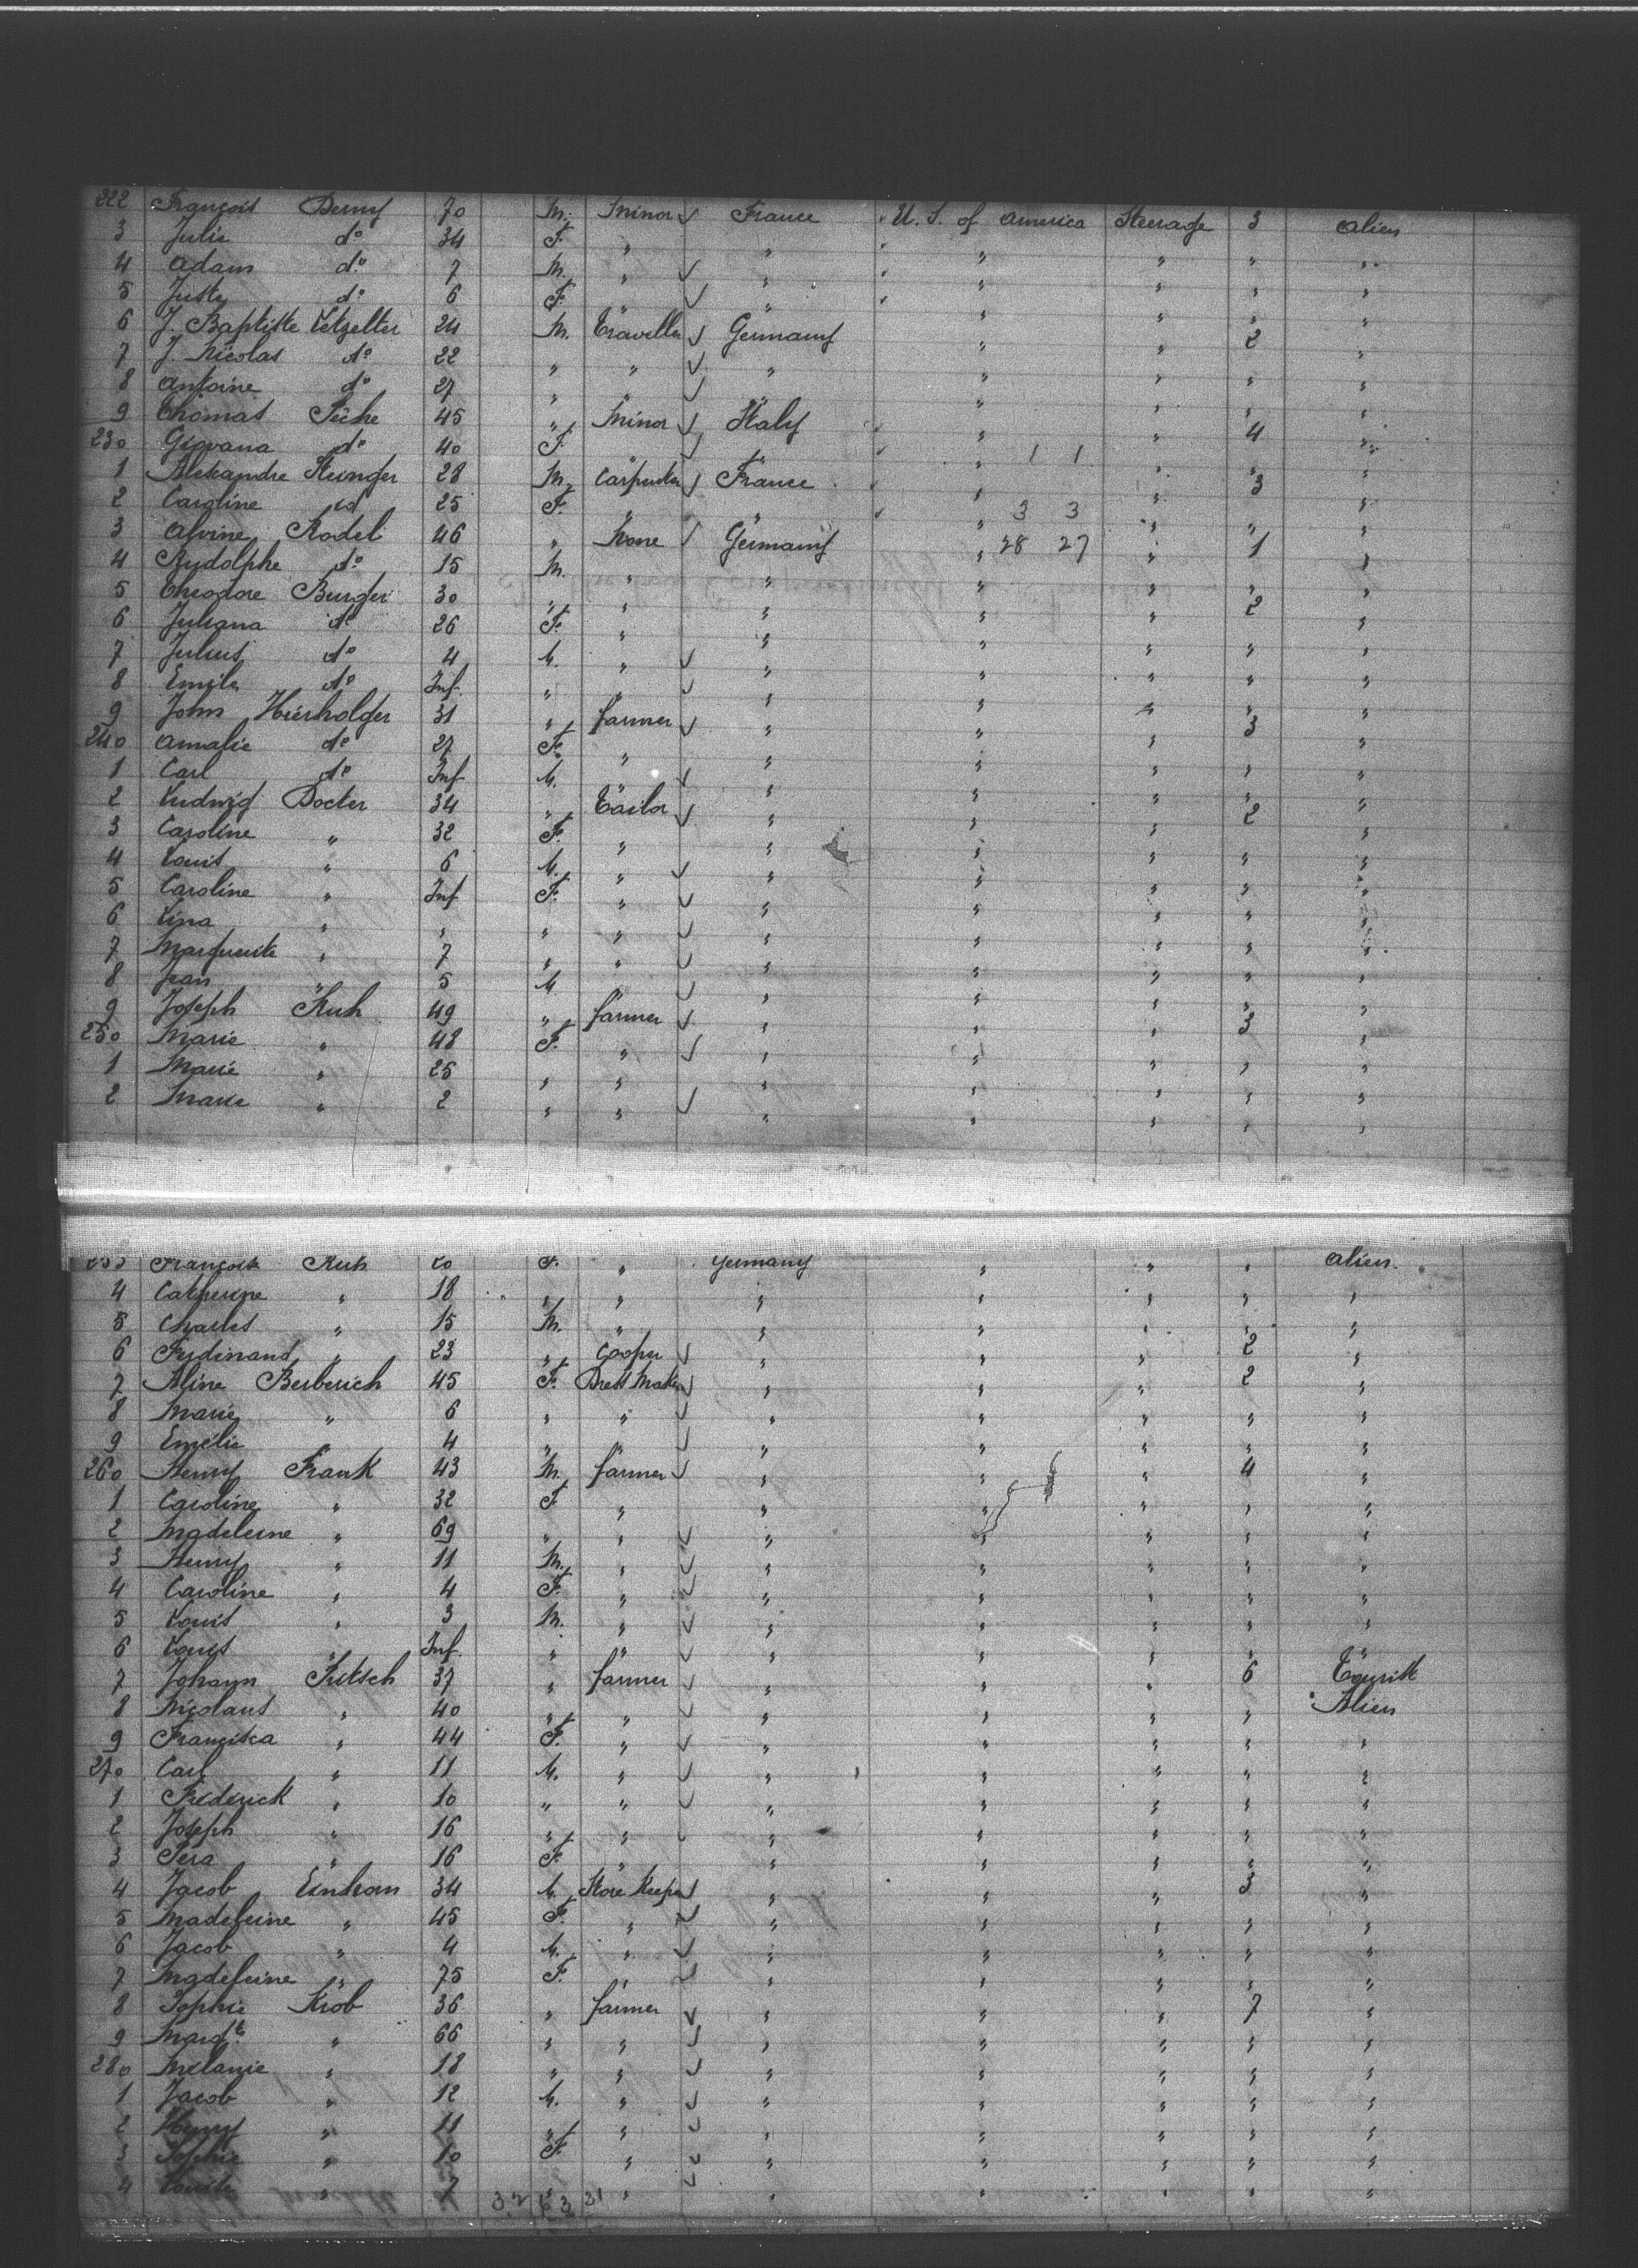 222 François Demy 70 M. Minor France U. S. of America Steerage 3 Alien
3 Julie do 34 F. " " " " " "
4 Adam do 7 M. " " " " " "
5 Juste do 6 F. " " " " " "
6 J. Baptiste Letzelter 24 M. Traveller Germany " " 2 "
7 J. Nicolas do 22 " " " " " "
8 Antoine do 27 " " " " " "
9 Thomas 45 " Minor Italy " " 4 "
230 Giovana do 40 F. " " " 1 1 " " "
1 Alexandre Steinger 28 M. Carpenter France " " 3 "
2 Caroline do 25 F. " " " 3 3 " " "
3 Alvine Rodel 46 " None Germany " 28 27 " 1 "
4 Rudolphe do 15 M. " " " " " "
5 Theodore Burger 30 " " " " " 2 "
6 Juliana do 26 F. " " " " " "
7 Julius do 4 M. " " " " " "
8 Emile do Inf. " " " " " " "
9 John Hierholger 31 " farmer " " " 3 "
240 Amalie do 27 F. " " " " " "
1 Carl do Inf M. " " " " " "
2 Ludwig Docter 34 " Tailor " " " 2 "
3 Caroline " 32 F. " " " " " "
4 Louis " 6 M. " " " " " "
5 Caroline " Inf F. " " " " " "
6 Lina " " " " " " " " "
7 Marguerite " 7 " " " " " " "
8 Jean " 5 M " " " " " "
9 Joseph Ruh 49 " farmer " " " 3 "
250 Marie " 48 F. " " " " " "
1 Marie " 25 " " " " " " "
2 Marie " 2 " " " " " " "
253 Ruh 20 F. " Germany " " " Alien
4 Catherine " 18 " " " " " " "
5 Charles " 15 M. " " " " " "
6 Ferdinand " 23 " Cooper " " " 2 "
7 Aline Berberich 45 F. Dress Maker " " " 2 "
8 Marie " 6 " " " " " " "
9 Emélie " 4 " " " " " " "
260 Henry Frank 43 M. farmer " " " 4 "
1 Caroline " 32 F. " " " " " "
2 Madeleine " 69 " " " " " " "
3 Henry " 11 M. " " " " " "
4 Caroline " 4 F. " " " " " "
5 Louis " 3 M. " " " " " "
6 Louis " Inf. " " " " " " "
7 Johann 37 " farmer " " " 6 Tourist
8 Nicolaus " 40 " " " " " " Alien
9 Francisca " 44 F. " " " " " "
270 Carl " 11 M. " " " " " "
1 Frederick " 10 " " " " " " "
2 Joseph " 16 " " " " " " "
3 Sera " 16 F. " " " " " "
4 Jacob Einhorn 34 M. Store Keeper " " " 3 "
5 Madeleine " 45 F. " " " " " "
6 Jacob " 4 M. " " " " " "
7 Madeleine " 75 F. " " " " " "
8 Sophie Krob 36 " farmer " " " 7 "
9 Margte " 66 " " " " " " "
280 Mélanie " 18 " " " " " " "
1 Jacob " 12 M. " " " " " "
2 Henry " 11 " " " " " " "
3 Sophie " 10 F. " " " " " "
4 Louise " 7 " " " " " " "
32 63 31